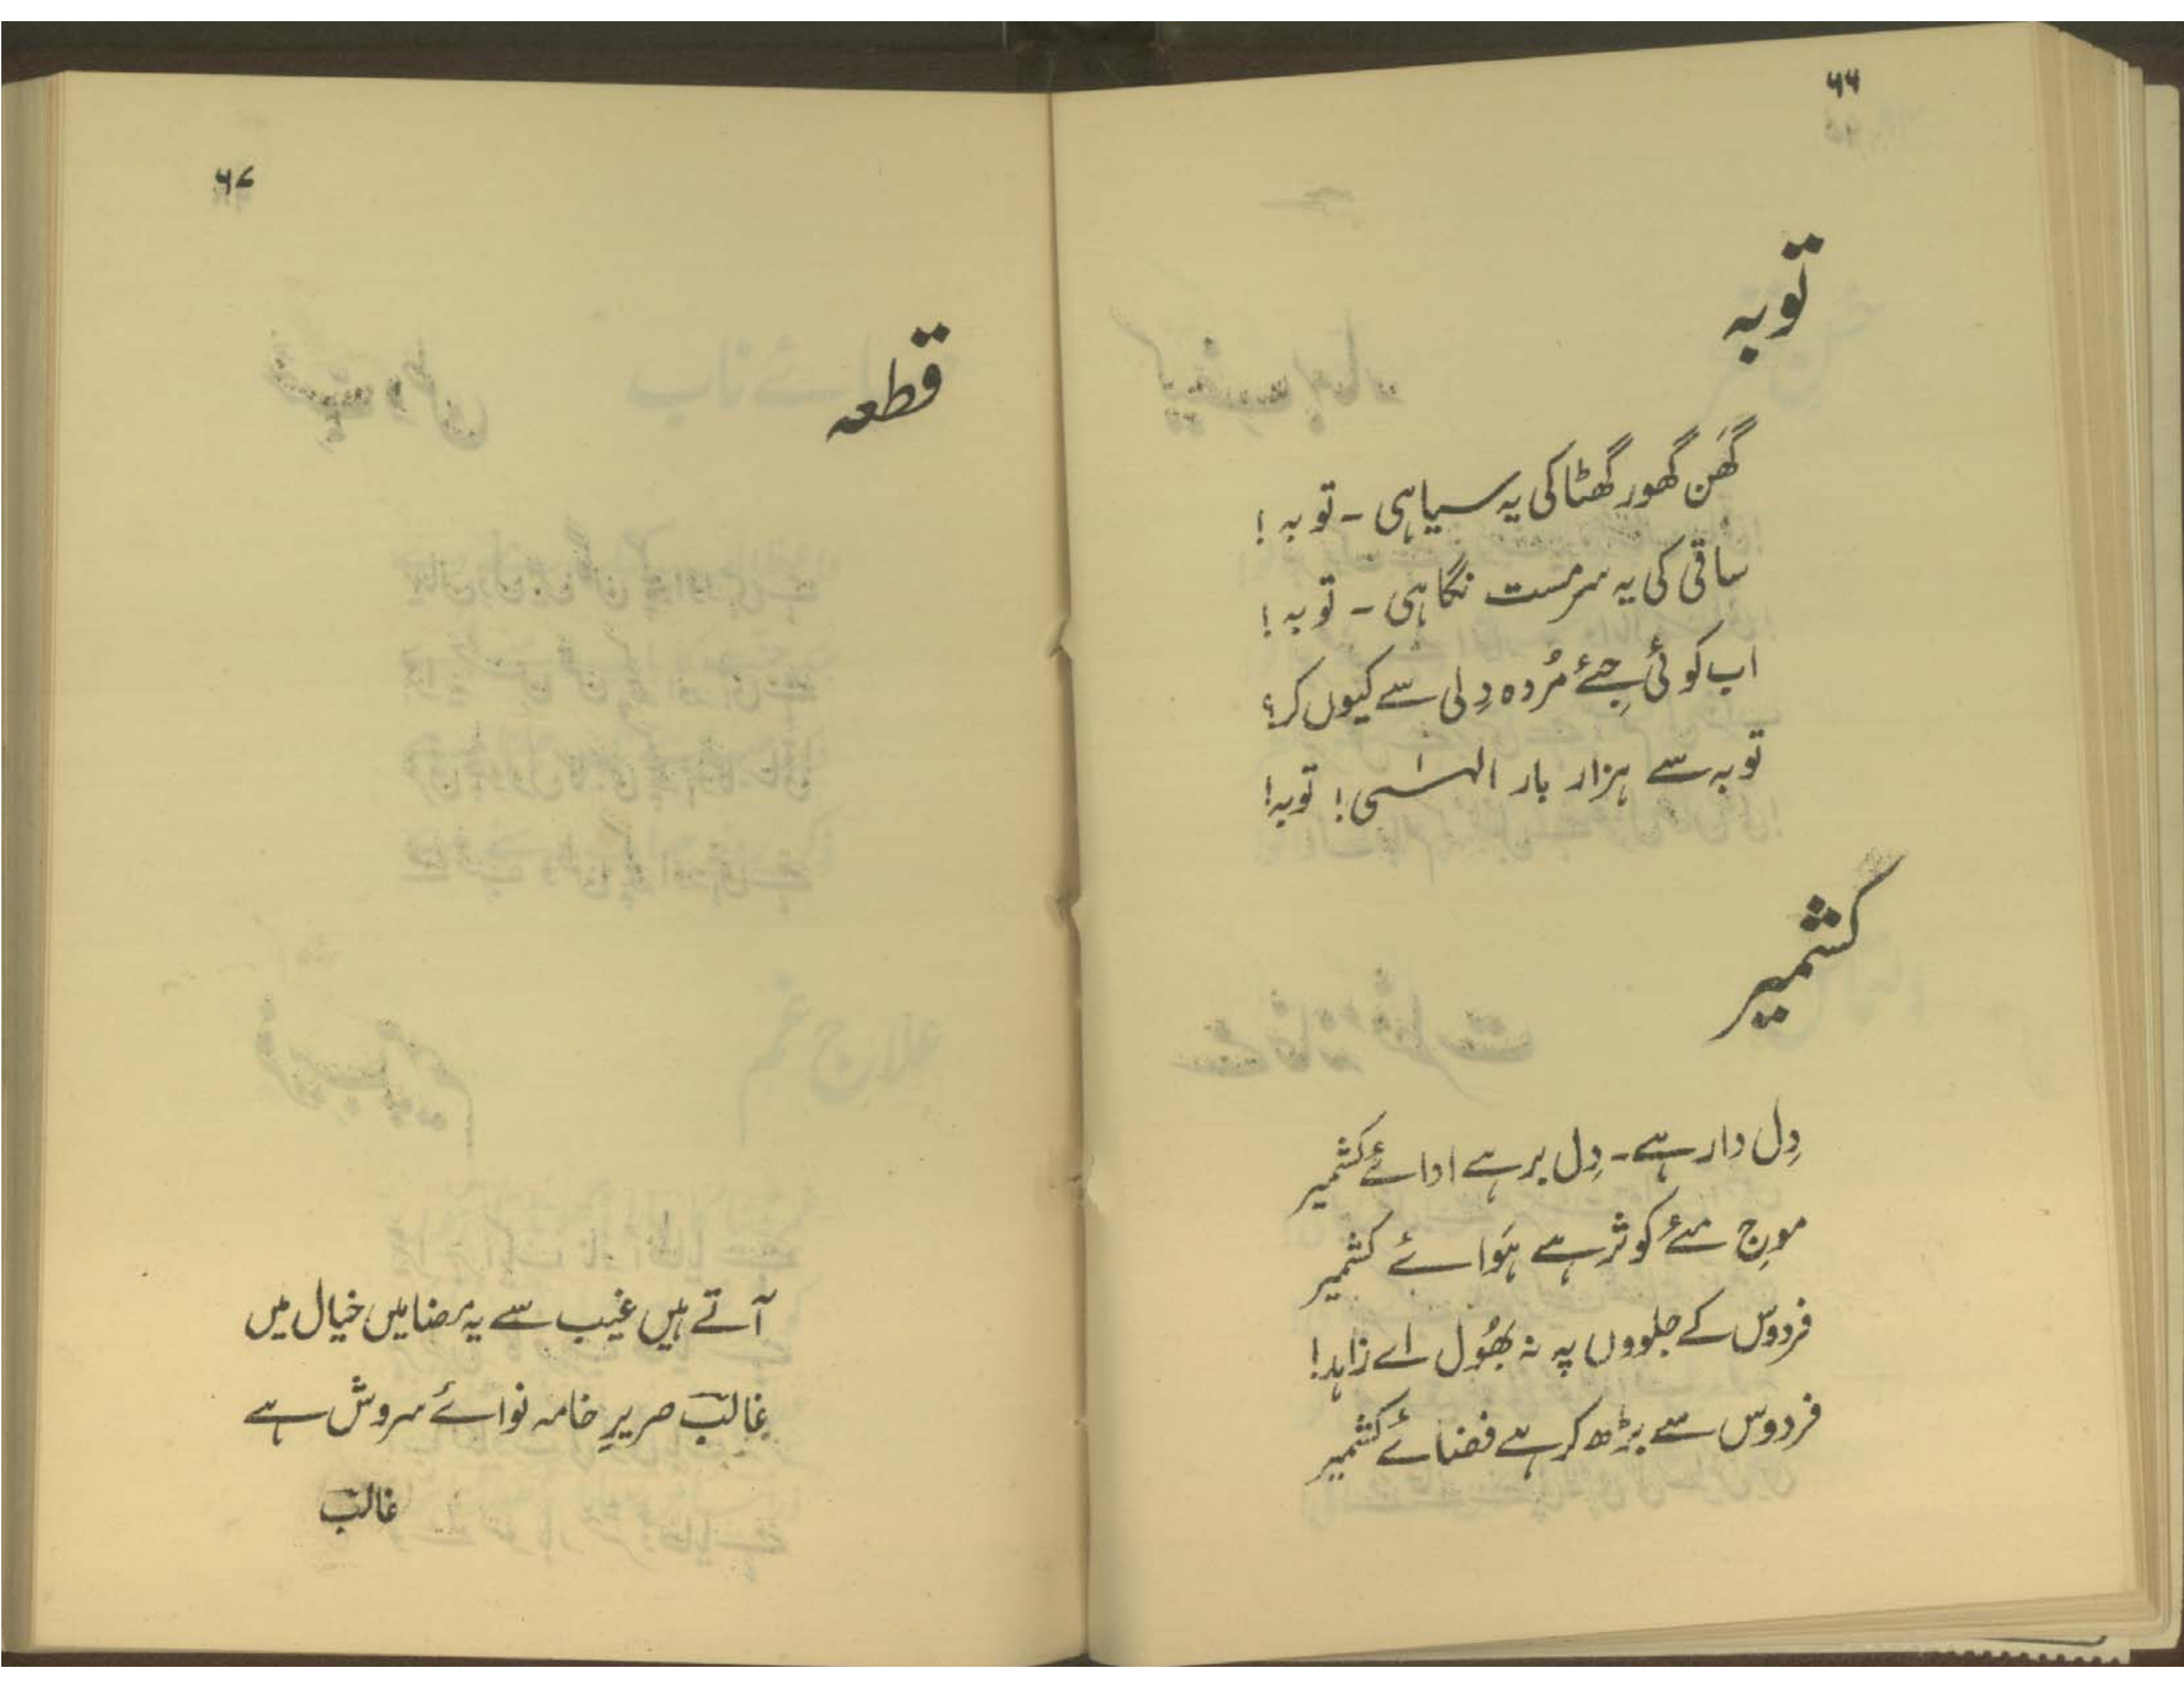 ۶۶
توبہ
گھَن گھور گھٹا کی یہ سیاہی ۔ توبہ !
ساقی کی یہ سرمست نگاہی ۔ توبہ !
اب کوئی جِئے مُردہ دِلی سے کیوں کر؟
توبہ سے ہزار بار الہٰی ! توبہ!
کشمیر
دِل دار ہے ۔ دِل بر ہے ادائے کشمیر
موجِ مئے کوثر ہے ہَوائے کشمیر
فردوس کے جلووں پہ نہ بھُول اے زاہد!
فردوس سے بڑھ کر ہے فضائے کشمیر
۶۷
قطعہ
آتے ہیں غیب سے یہ مضامیں خیال میں
غالب صریرِ خامہ نوائے سروش ہے
غالب